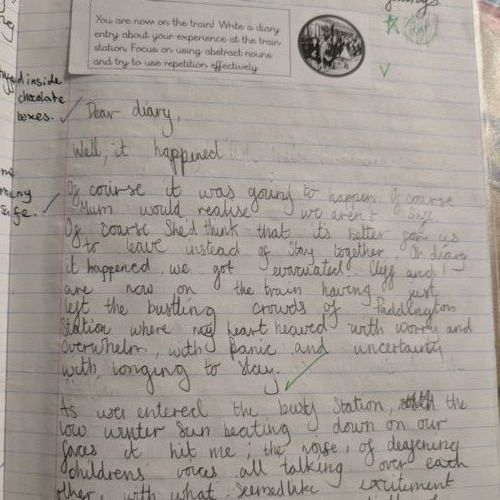 You are now on the train! Write a diary
entry about your experience at the train
station. Focus on using abstract nouns
and try to use repetition effectively
inside
chocolate
boxes.
Dear diary,
Well, it happened
Of course it was going to happen. Of course
Mum would realise we aren't safe
Of course She'd think that its better for us
to leave instead of stay together. Oh diary
it happened. we got evacuated. Cliff and I
are now on the train having just
left the bustling crowds of Paddington
Station where my heart heaved with worry and
overwhelm, with panic and uncertainty
with longing to stay.
As we entered the busy Station, the
low winter sun beating down on our
faces it hit me; the noise, of deafening
childrens voices all talking over each
other, with what seemed like excitement